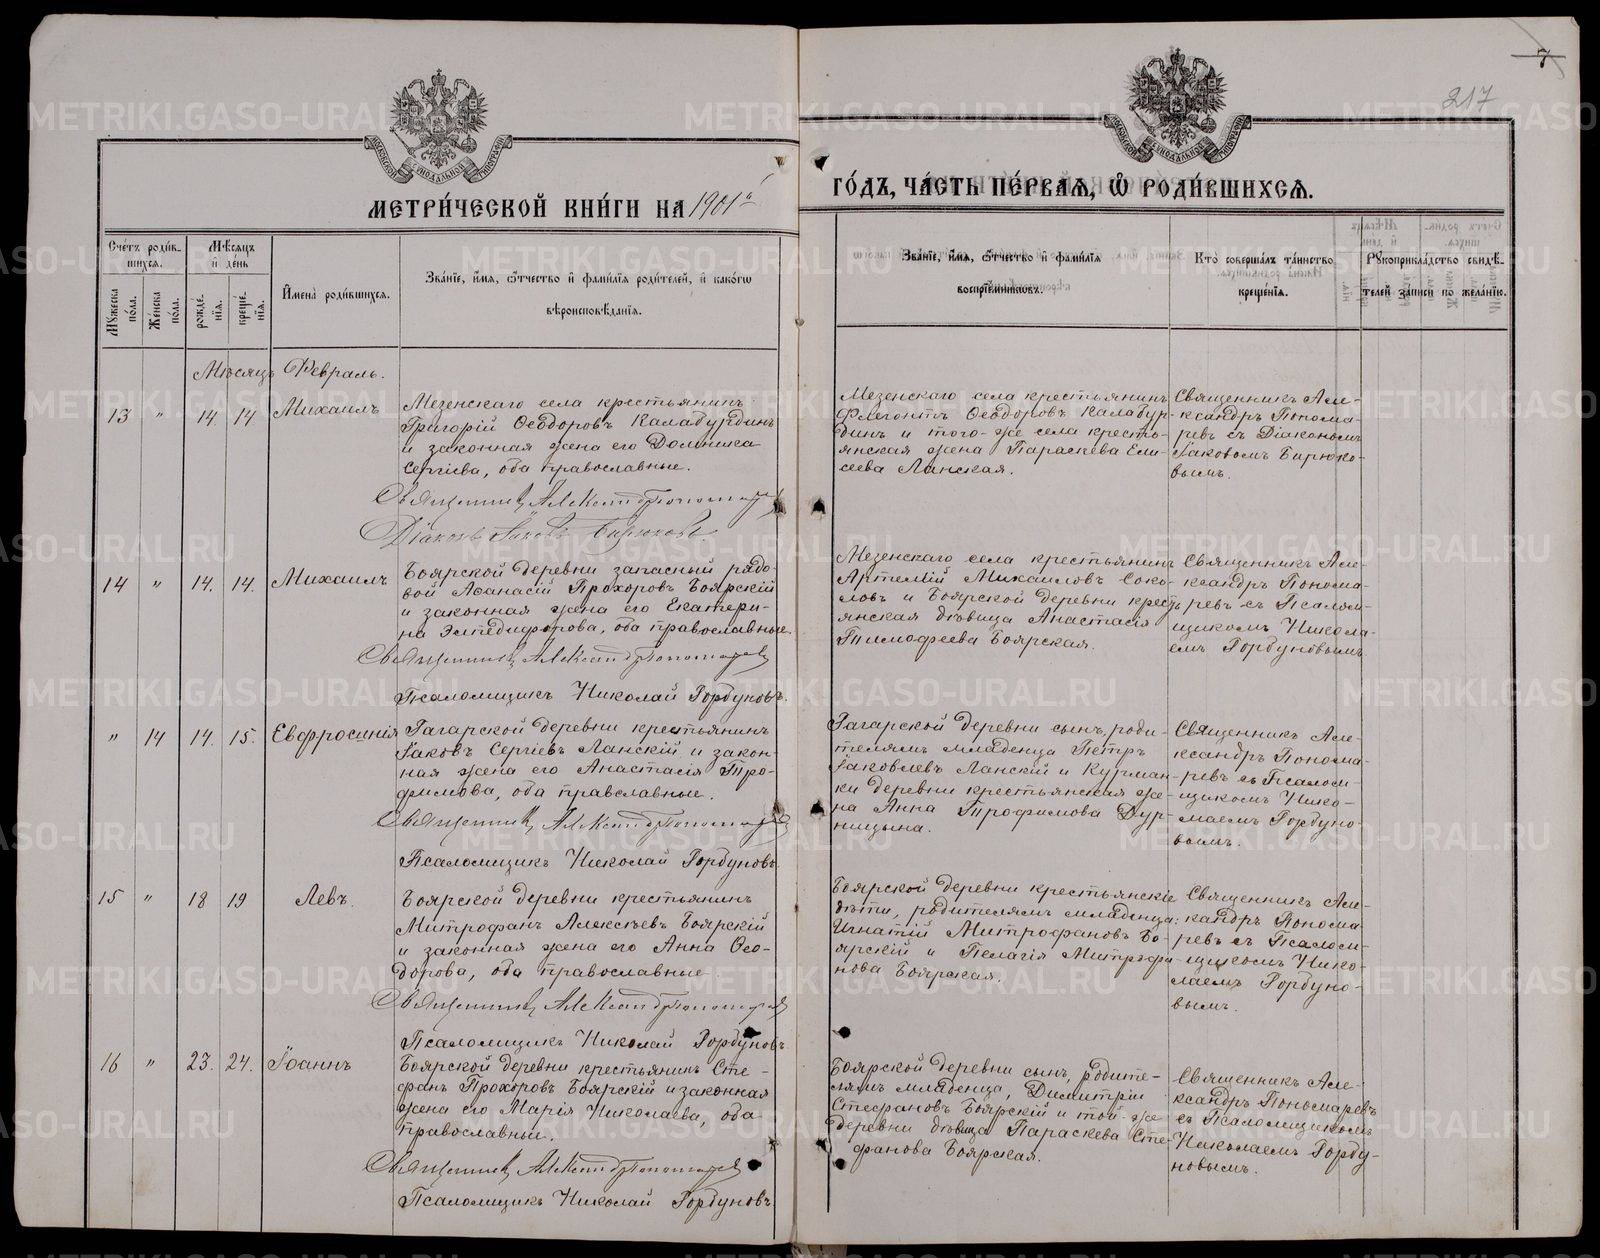 7
217
МЕТРИ́ЧЕСКОЙ КНИ́ГИ НА 1901й
ГО́ДЪ, ЧА́СТЬ ПЕ́РВАѦ, Ѽ РОДИ́ВШИХСѦ.
Сче́тъ роди́в-
шихсѧ.
Мꙋ́жеска по́ла.
Же́нска по́ла.
Мѣ́сѧцъ
и҆ де́нь
рожде́-
нїѧ.
креще́-
нїѧ.
И҆мена̀ роди́вшихсѧ.
Зва́нїе, и҆́мѧ, ѻ҆́тчество и҆ фами́лїѧ роди́телей, и҆ како́гѡ
вѣроисповѣ́данїѧ.
Зва́нїе, и҆́мѧ, ѻ҆́тчество и҆ фами́лїѧ
воспрїе́мниковъ.
Кто̀ соверша́лъ та́инство
креще́нїѧ.
Рꙋкоприкла́дство свидѣ́-
телей за́писи по жела́нїю.
Мѣсяцъ Февраль.
13 " 14. 14 Михаилъ
Мезенскаго села крестьянинъ
Григорій Ѳеодоровъ Калабурдинъ
и законная жена его Домника
Сергіева, оба православные.
Священникъ Александръ Пономаревъ
Діаконъ Іаковъ Бирюковъ.
Мезенскаго села крестьянинъ
Флегонтъ Ѳеодоровъ Калабур-
динъ и того-же села кресть-
янская жена Параскева Ели-
сеева Ланская.
Священникъ Але-
ксандръ Понома-
ревъ съ Діакономъ
Іаковомъ Бирюко-
вымъ.
14 " 14. 14. Михаилъ
Боярской деревни запасный рядо-
вой Аѳанасій Прохоровъ Боярскій
и законная жена его Екатери-
на Элпедифорова, оба православные.
Священникъ Александръ Пономаревъ
Псаломщикъ Николай Горбуновъ.
Мезенскаго села крестьянинъ
Артемій Михаиловъ Соко-
ловъ и Боярской деревни кресть-
янская дѣвица Анастасія
Тимофеева Боярская.
Священникъ Але-
ксандръ Понома-
ревъ съ Псалом-
щикомъ Никола-
емъ Горбуновымъ
" 14 14. 15. Евфросинія
Гагарской деревни крестьянинъ
Іаковъ Сергіевъ Ланскій и закон-
ная жена его Анастасія Тро-
фимова, оба православные.
Священникъ Александръ Пономаревъ
Псаломщикъ Николай Горбуновъ
Гагарской деревни сынъ, роди-
телямъ младенца Петръ
Іаковлевъ Ланскій и Курман-
ки деревни крестьянская же-
на Анна Трофимова Дур-
ницына.
Священникъ Але-
ксандръ Понома-
ревъ съ Псалом-
щикомъ Нико-
лаемъ Горбуно-
вымъ.
15 " 18 19 Левъ.
Боярской деревни крестьянинъ
Митрофанъ Алексѣевъ Боярскій
и законная жена его Анна Ѳео-
дорова, оба православные
Священникъ Александръ Пономаревъ
Псаломщикъ Николай Горбуновъ
Боярской деревни крестьянскіе
дѣти, родителямъ младенца:
Игнатій Митрофановъ Бо-
ярскій и Пелагія Митрофа-
нова Боярская.
Священникъ Але-
кандръ Понома-
ревъ съ Псалом-
щикомъ Нико-
лаемъ Горбуно-
вымъ.
16 " 23. 24. Іоаннъ
Боярской деревни крестьянинъ Сте-
фанъ Прохоровъ Боярскій и законная
жена его Марія Николаева, оба
православные.
Священникъ Александръ Пономаревъ
Псаломщикъ Николай Горбуновъ
Боярской деревни сынъ, родите-
лямъ младенца, Димитрій
Стефановъ Боярскій и той-же
деревни дѣвица Параскева Сте-
фанова Боярская.
Священникъ Але-
ксандръ Пономаревъ
съ Псаломщикомъ
Николаемъ Горбу-
новымъ.
METRIKI.GASO-URAL.RU